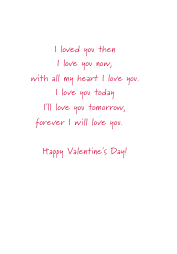 I loved you then
I love you now,
with all my heart I love you.
I love you today
I'll love you tomorrow,
forever I will love you.
Happy Valentine's Day!